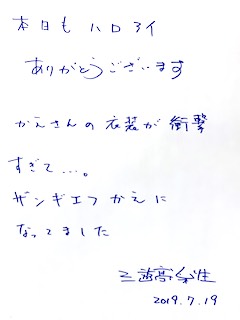 本日もハロアイ
ありがとうございます
かえさんの衣装が衝撃
すぎて…。
ザンギエフかえに
なってました
三遊亭
2019.7.19